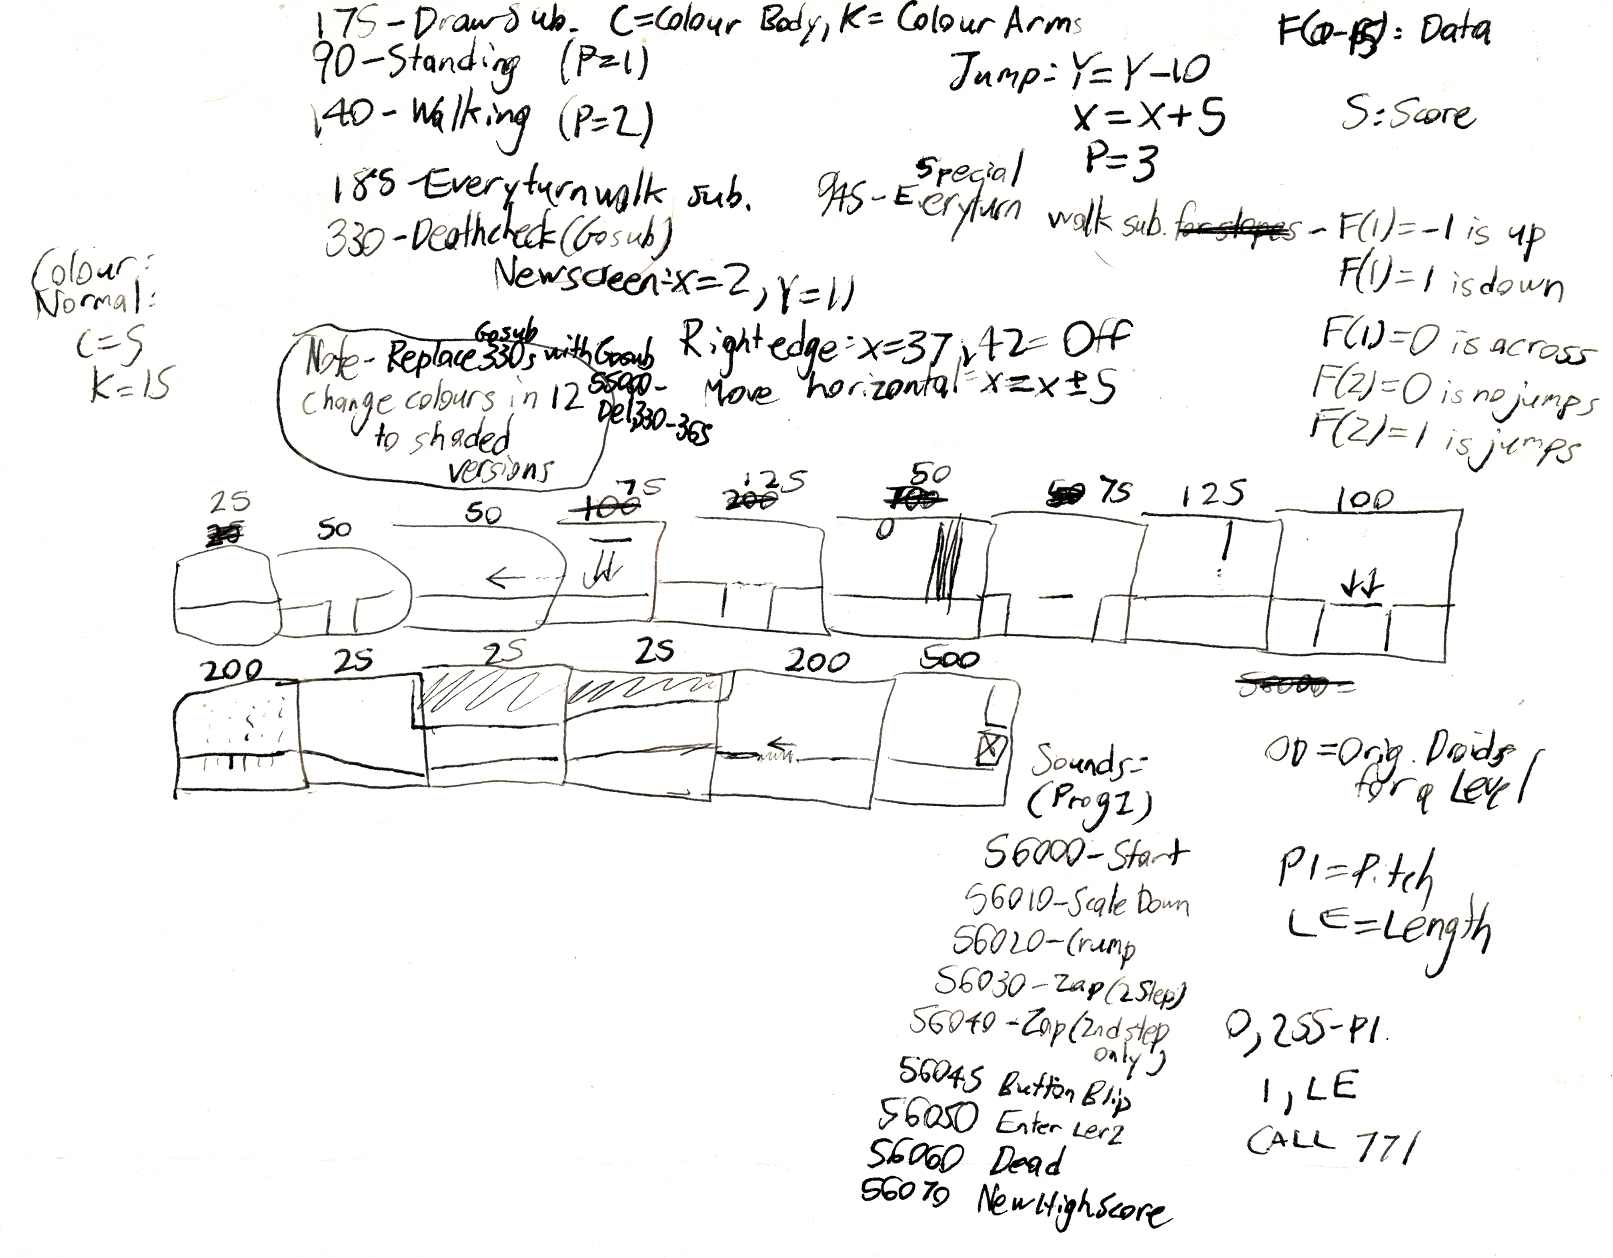 175-Draw Sub. C=Colour Body, K= Colour Arms
F(0-15): Data
90-Standing (P=1)
Jump: Y=Y-10
140-Walking (P=2)
X=X+5
S: Score
P=3
185-Everyturn walk sub.
945-Everyturn Special walk sub. for slopes - F(1)=-1 is up
330-Deathcheck (Gosub)
F(1)=1 is down
Newscreen: X=2, Y=11
Colour:
Normal:
C=5
K=15
Note- Replace Gosub 330s with Gosub 55000- Del 330-365
change colours in 12
to shaded
versions
Right edge: X=37, 42= Off
Move horizontal= X=X±5
F(1)=0 is across
F(2)=0 is no jumps
F(2)=1 is jumps
25 50 50 75 125 50 75 125 100
100 200 100 50
0
200 25 25 25 200 500
56000=
Sounds=
(Prog 1)
56000-Start
56010-Scale Down
56020-Crump
56030-Zap (2 Step)
56040-Zap (2nd step
only)
56045 Button Blip
56050 Enter Ler2
56060 Dead
56070 New High Score
OD=Orig. Droids
for a Level
PI=Pitch
LE=Length
0,255-PI.
1, LE
CALL 771